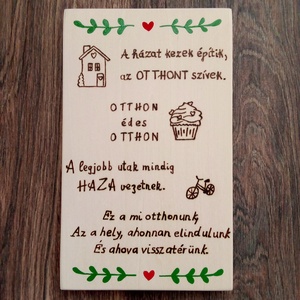 A házat kezek építik,
az OTTHONT szívek.
OTTHON
édes
OTTHON
A legjobb utak mindig
HAZA vezetnek.
Ez a mi otthonunk,
Az a hely, ahonnan elindulunk
És ahova visszatérünk.